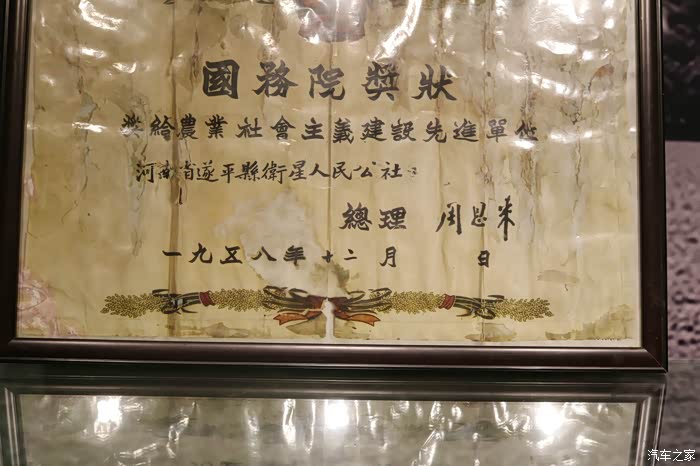 國務院獎狀
獎給農業社會主義建設先進單位
河南省遂平縣衛星人民公社：
總理 周恩來
一九五八年十二月 日
汽车之家